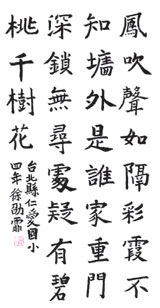 鳳吹聲如隔彩霞不
知墻外是誰家重門
深鎖無尋處疑有碧
桃千樹花
台北縣仁愛國小
四年徐劭霈